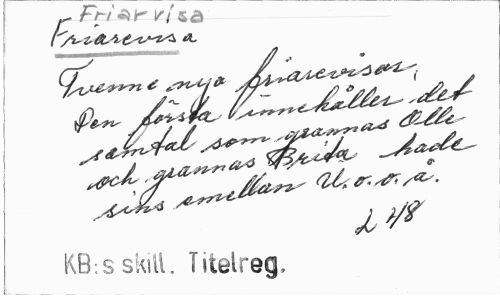 Friarvisa
Friarevisa
Tvenne nya friarevisor.
Den första innehåller det
samtal som grannas Olle
och grannas Brita hade
sins emellan U.o.o.å.
L 48
KB:s skill. Titelreg.